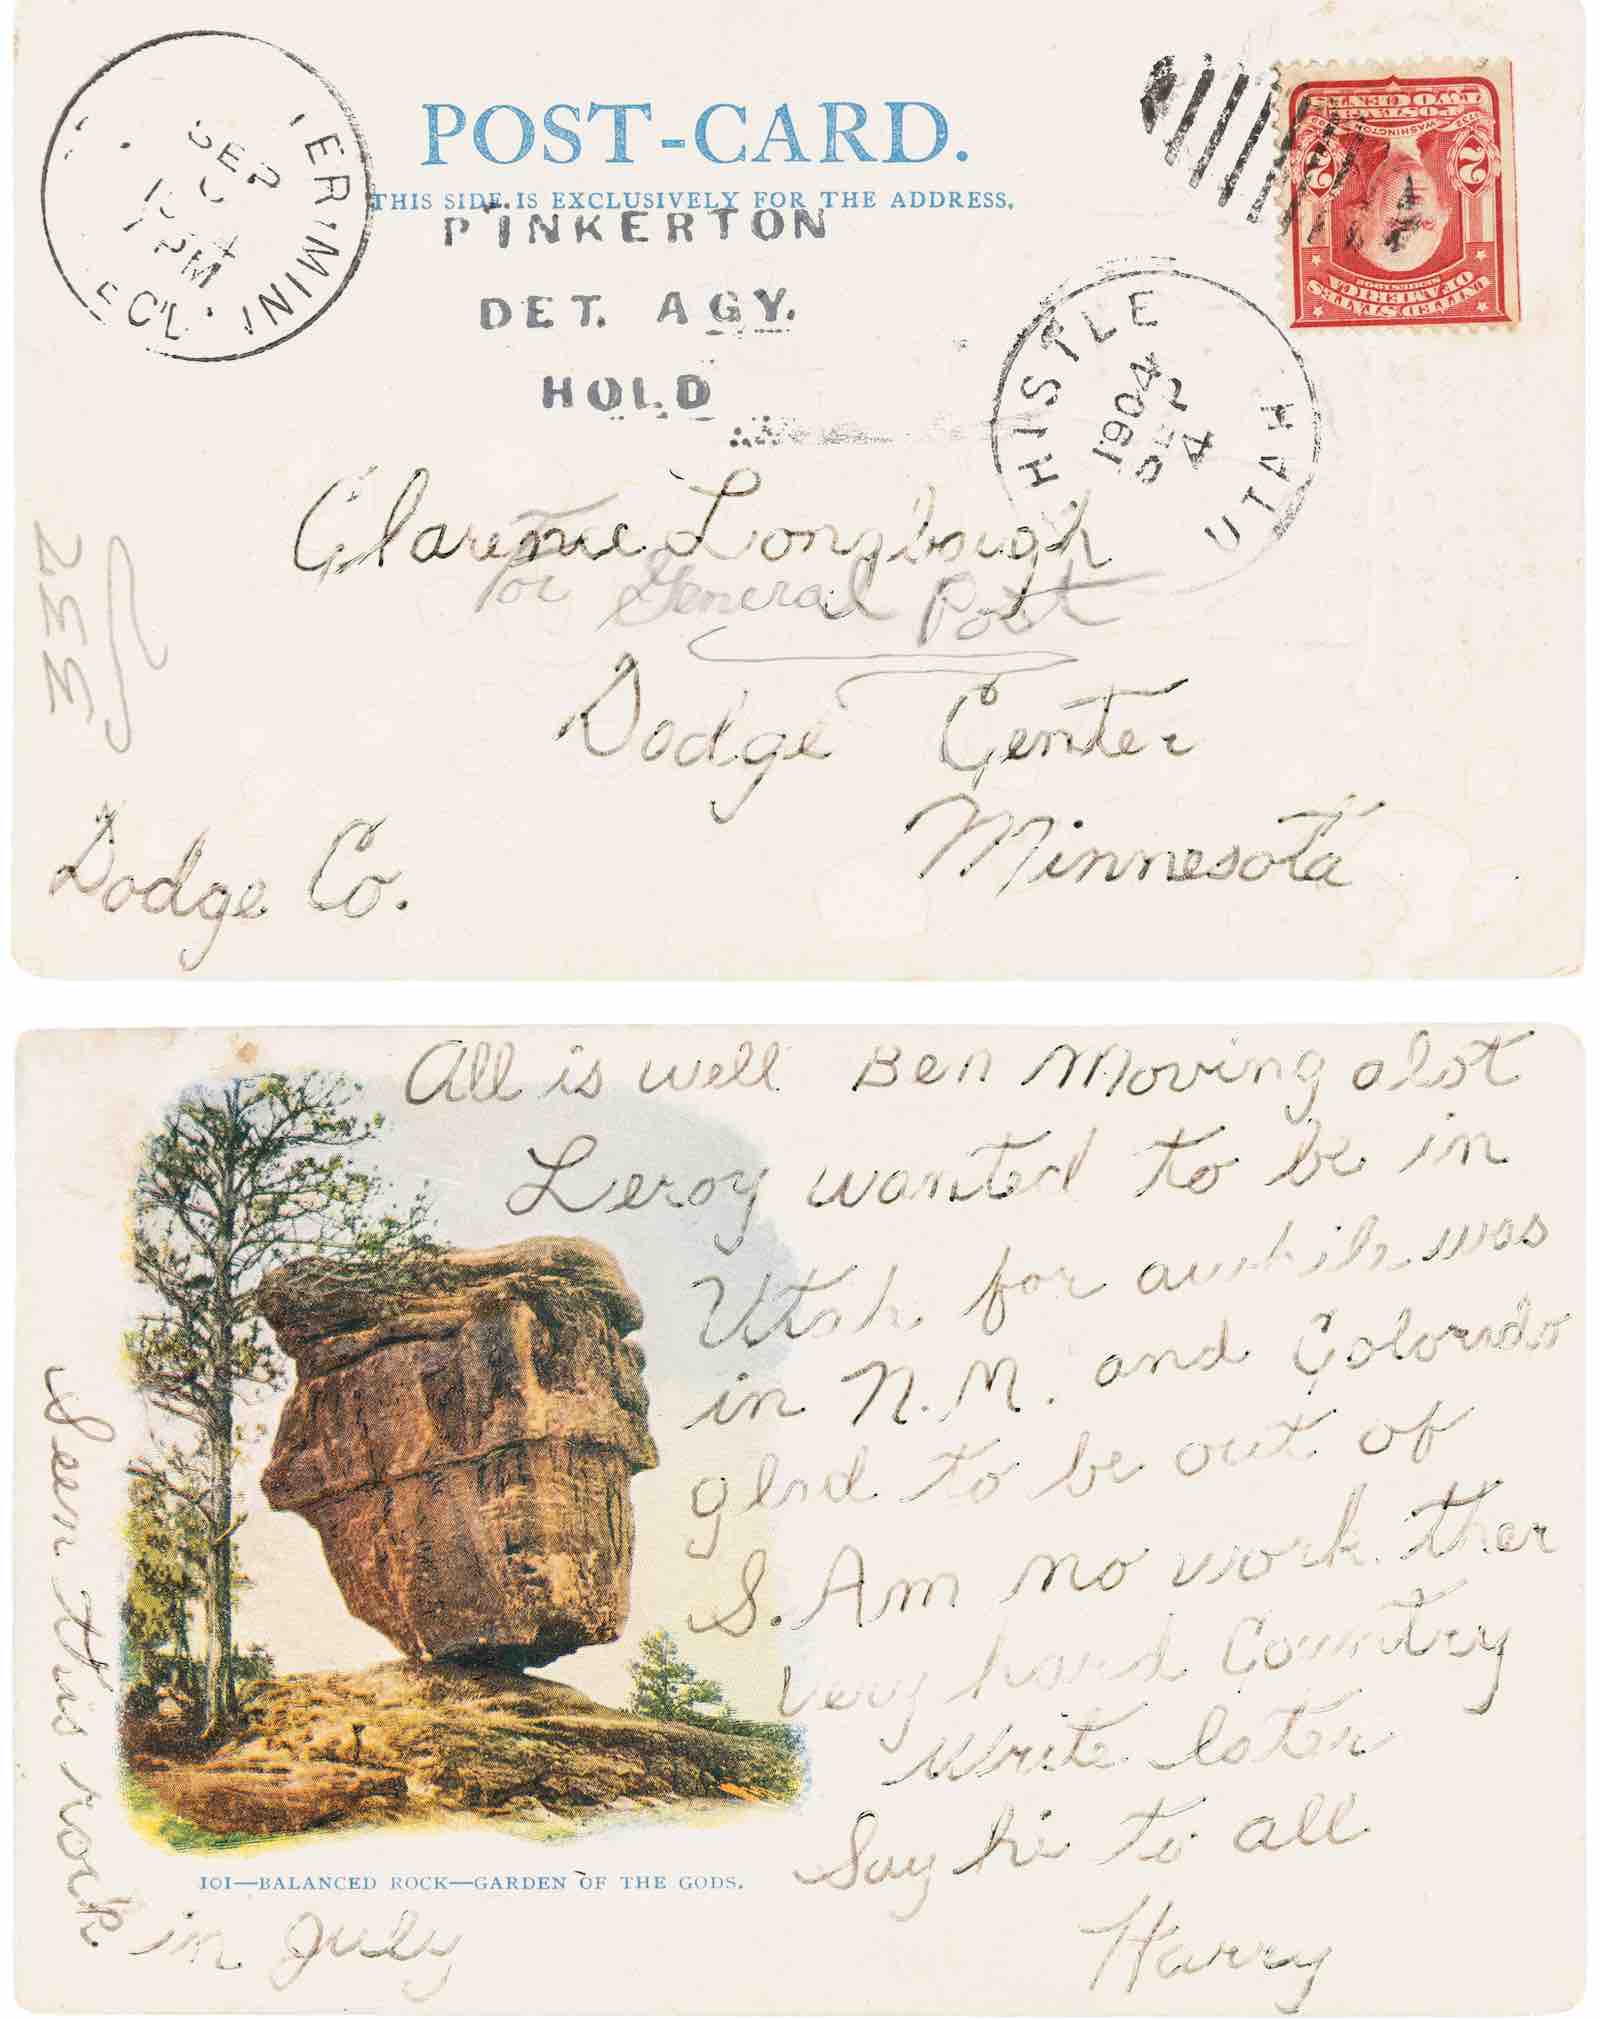 POST-CARD.
THIS SIDE IS EXCLUSIVELY FOR THE ADDRESS.
SEP
1 PM
PINKERTON
DET. AGY.
HOLD
HISTLE
UTAH
1904
4
TWO CENTS
POSTAGE
1732 WASHINGTON
2 2
UNITED STATES
OF AMERICA
Clarence Longbaugh
or General Post
Dodge Center
Minnesota
Dodge Co.
All is well Ben Moving alot
Leroy wanted to be in
Utah for awhile was
in N.M. and Colorado
glad to be out of
S. Am no work ther
very hard Country
write later
Say hi to all
Harry
Seen this rock
in July
101—BALANCED ROCK—GARDEN OF THE GODS.